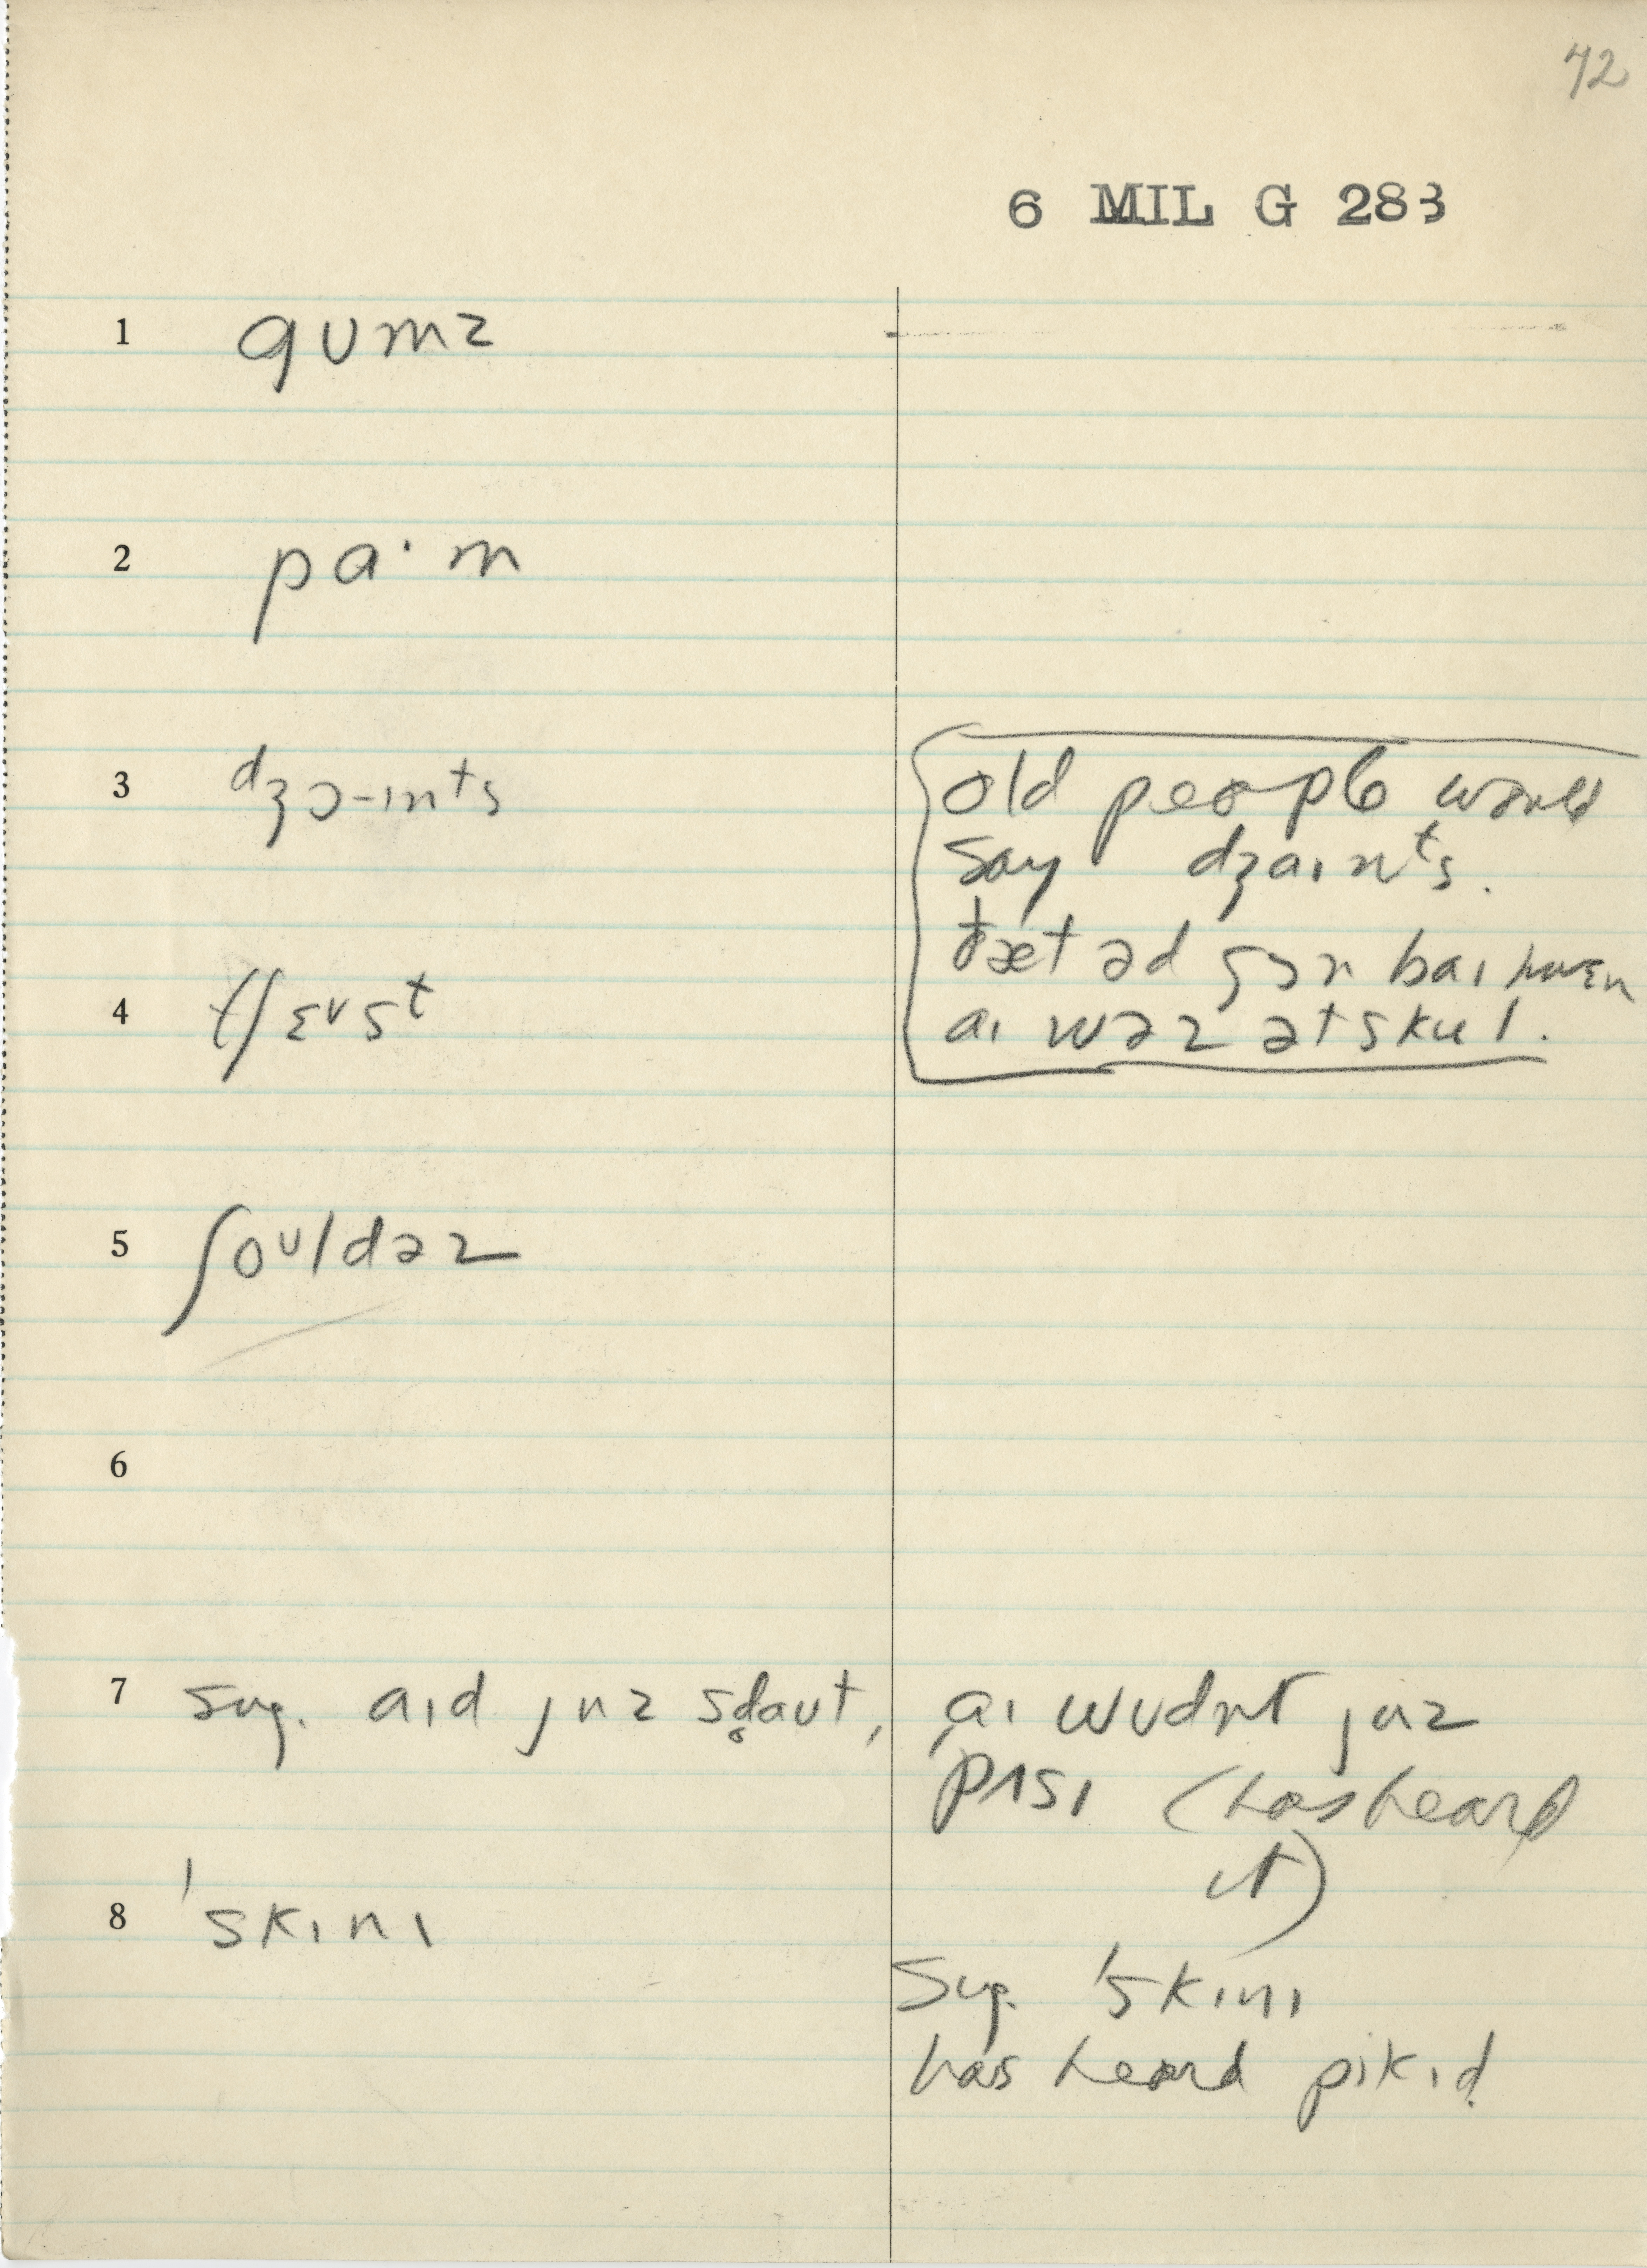 72
6 MIL G 283
1 gʊmz
2 pa·m
3 dʒɔ-ɪnᵗs
old people would
say dʒaɪnᵗs.
ðæt əd gɔn baɪ hwɛn
aɪ wəz ət skul.
4 tʃɛᵛsᵗ
5 ʃoᵁldəz
6
7 sug. aɪd juz sd̥aʊt, aɪ wʊdnt juz
pɪsɪ (has heard
it)
8 ˈskɪnɪ
Sug. ˈskɪnɪ
has heard pikɪd